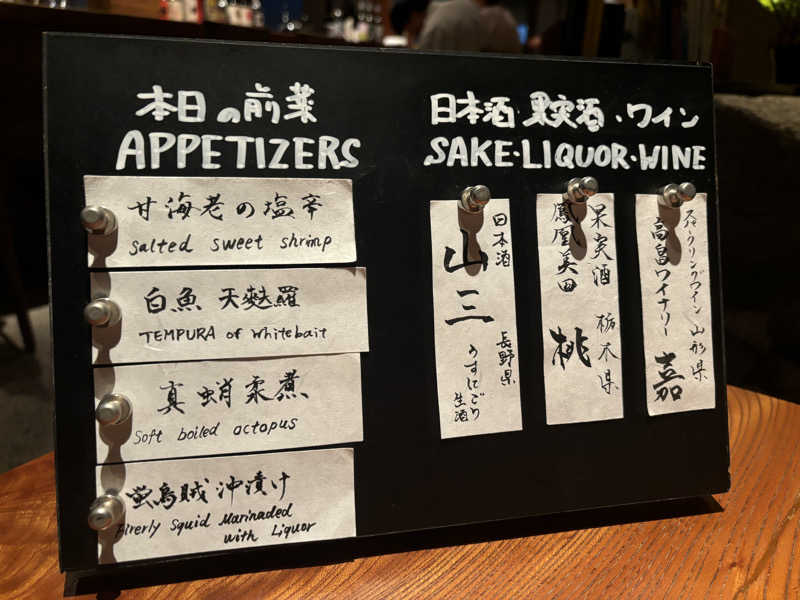 本日の前菜
APPETIZERS
甘海老の塩辛
Salted sweet shrimp
白魚 天麩羅
TEMPURA of whitebait
真蛸柔煮
Soft boiled octopus
蛍烏賊沖漬け
Firerly Squid Marinaded
with Liquor
日本酒・果実酒・ワイン
SAKE・LIQUOR・WINE
日本酒 長野県
山三
うすにごり
生酒
果実酒 栃木県
鳳凰美田 桃
スパークリングワイン 山形県
高畠ワイナリー 嘉